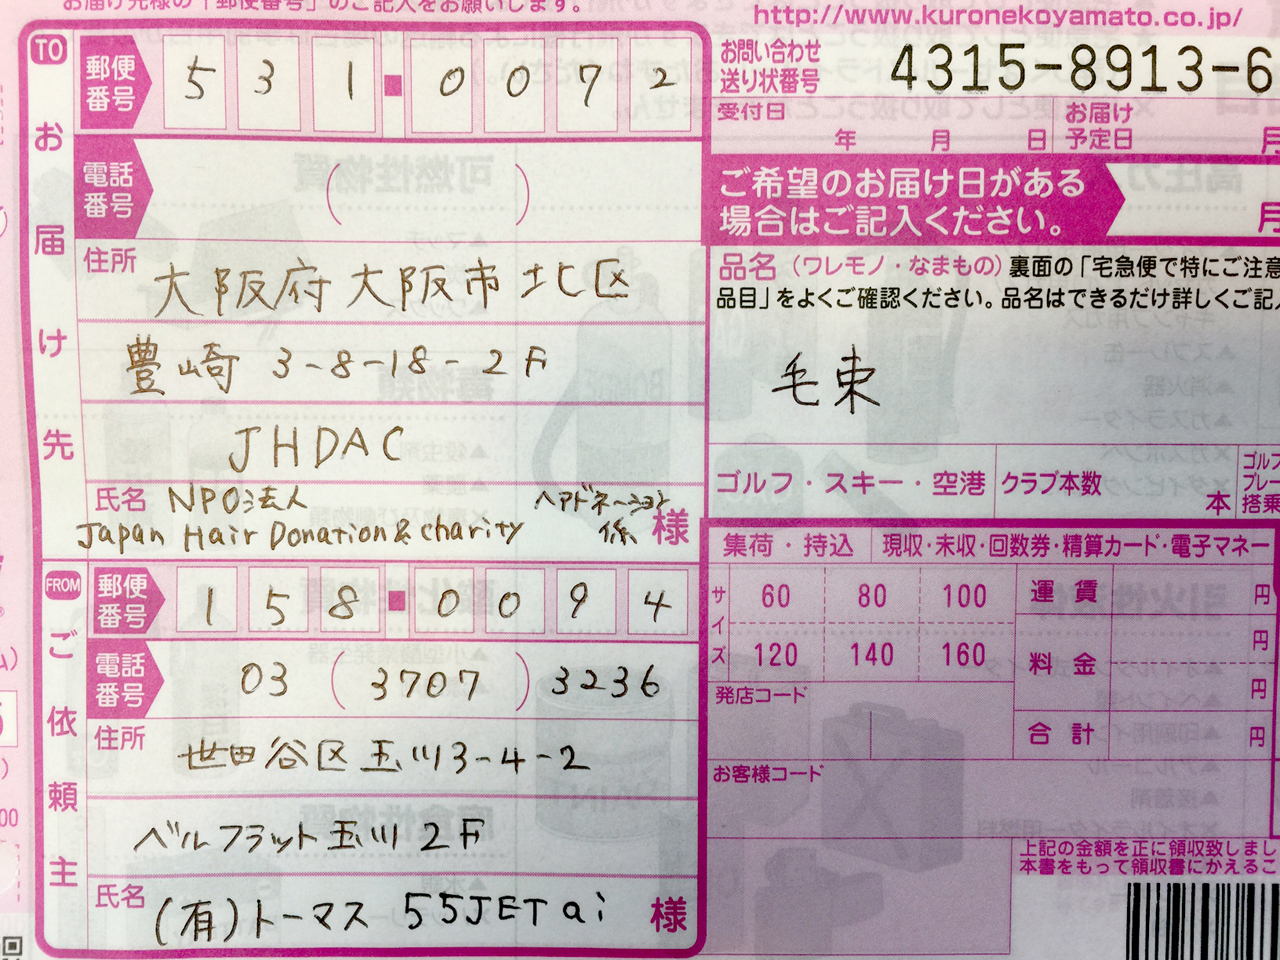 お届け先様の「郵便番号」のご記入をお願いします。
http://www.kuronekoyamato.co.jp/
TO
お届け先
郵便番号 531-0072
電話番号 ( )
住所
大阪府大阪市北区
豊崎 3-8-18-2F
JHDAC
氏名 NPO法人 ヘアドネーション
Japan Hair Donation & charity 係 様
FROM
ご依頼主
郵便番号 158-0094
電話番号 03 (3707) 3236
住所
世田谷区玉川3-4-2
ベルフラット玉川 2F
氏名 (有)トーマス 55JETai 様
お問い合わせ
送り状番号 4315-8913-6
受付日 年 月 日
お届け
予定日 月
ご希望のお届け日がある
場合はご記入ください。 月
品名(ワレモノ・なまもの)裏面の「宅急便で特にご注意
品目」をよくご確認ください。品名はできるだけ詳しくご記入
毛束
ゴルフ・スキー・空港 クラブ本数 本
ゴルフ
プレー
搭乗
集荷・持込 現収・未収・回数券・精算カード・電子マネー
サイズ
60 80 100
120 140 160
運賃 円
料金 円
円
合計 円
発店コード
お客様コード
上記の金額を正に領収致しまし
本書をもって領収書にかえるこ